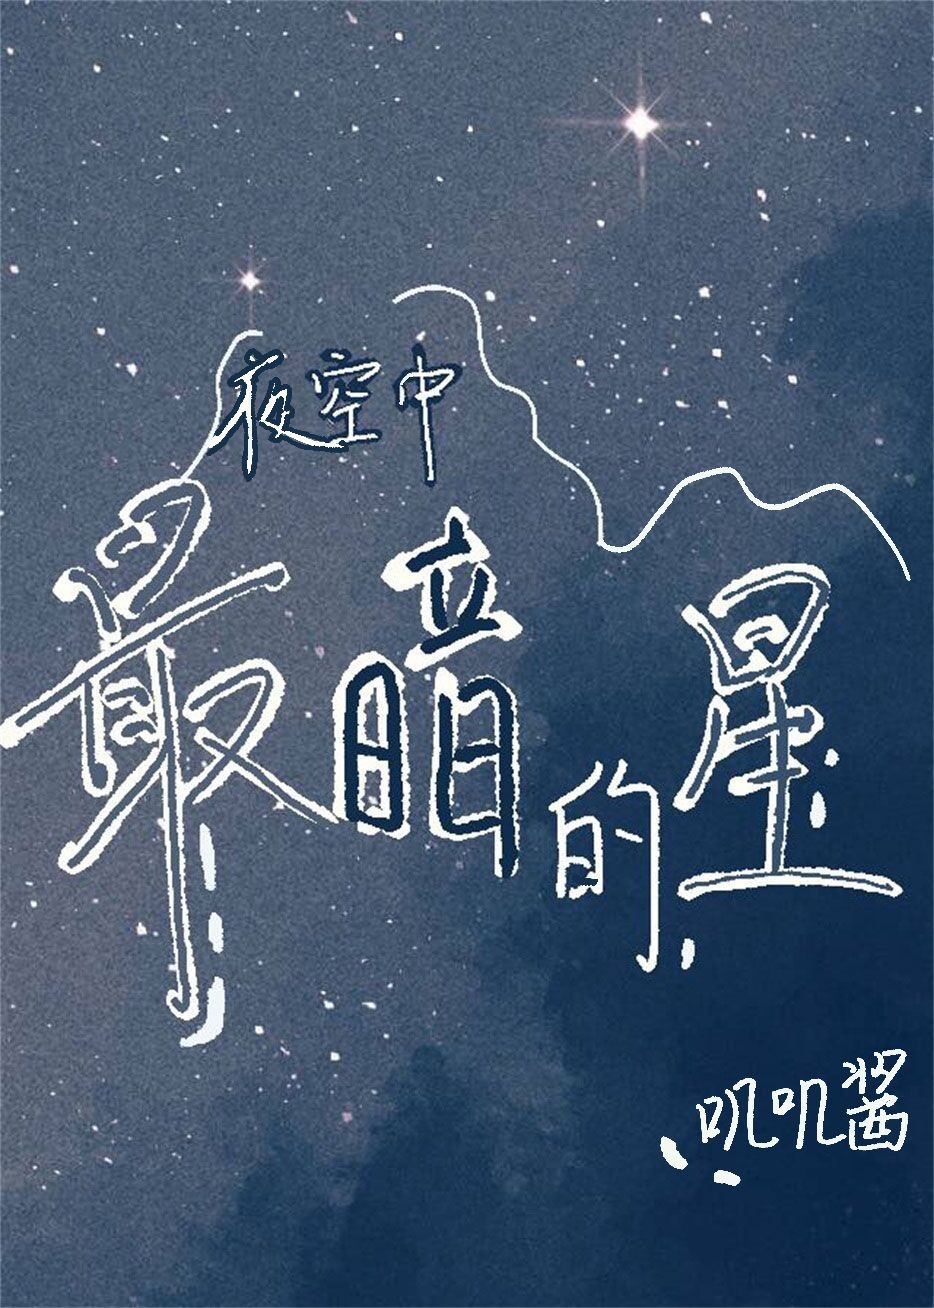 夜空中
最暗的星
叽叽酱